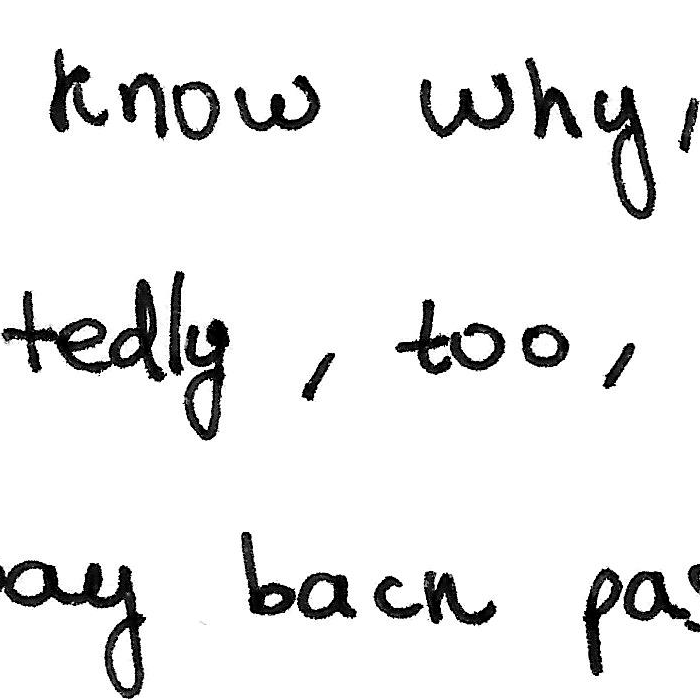 know why,
tedly, too,
way back pas